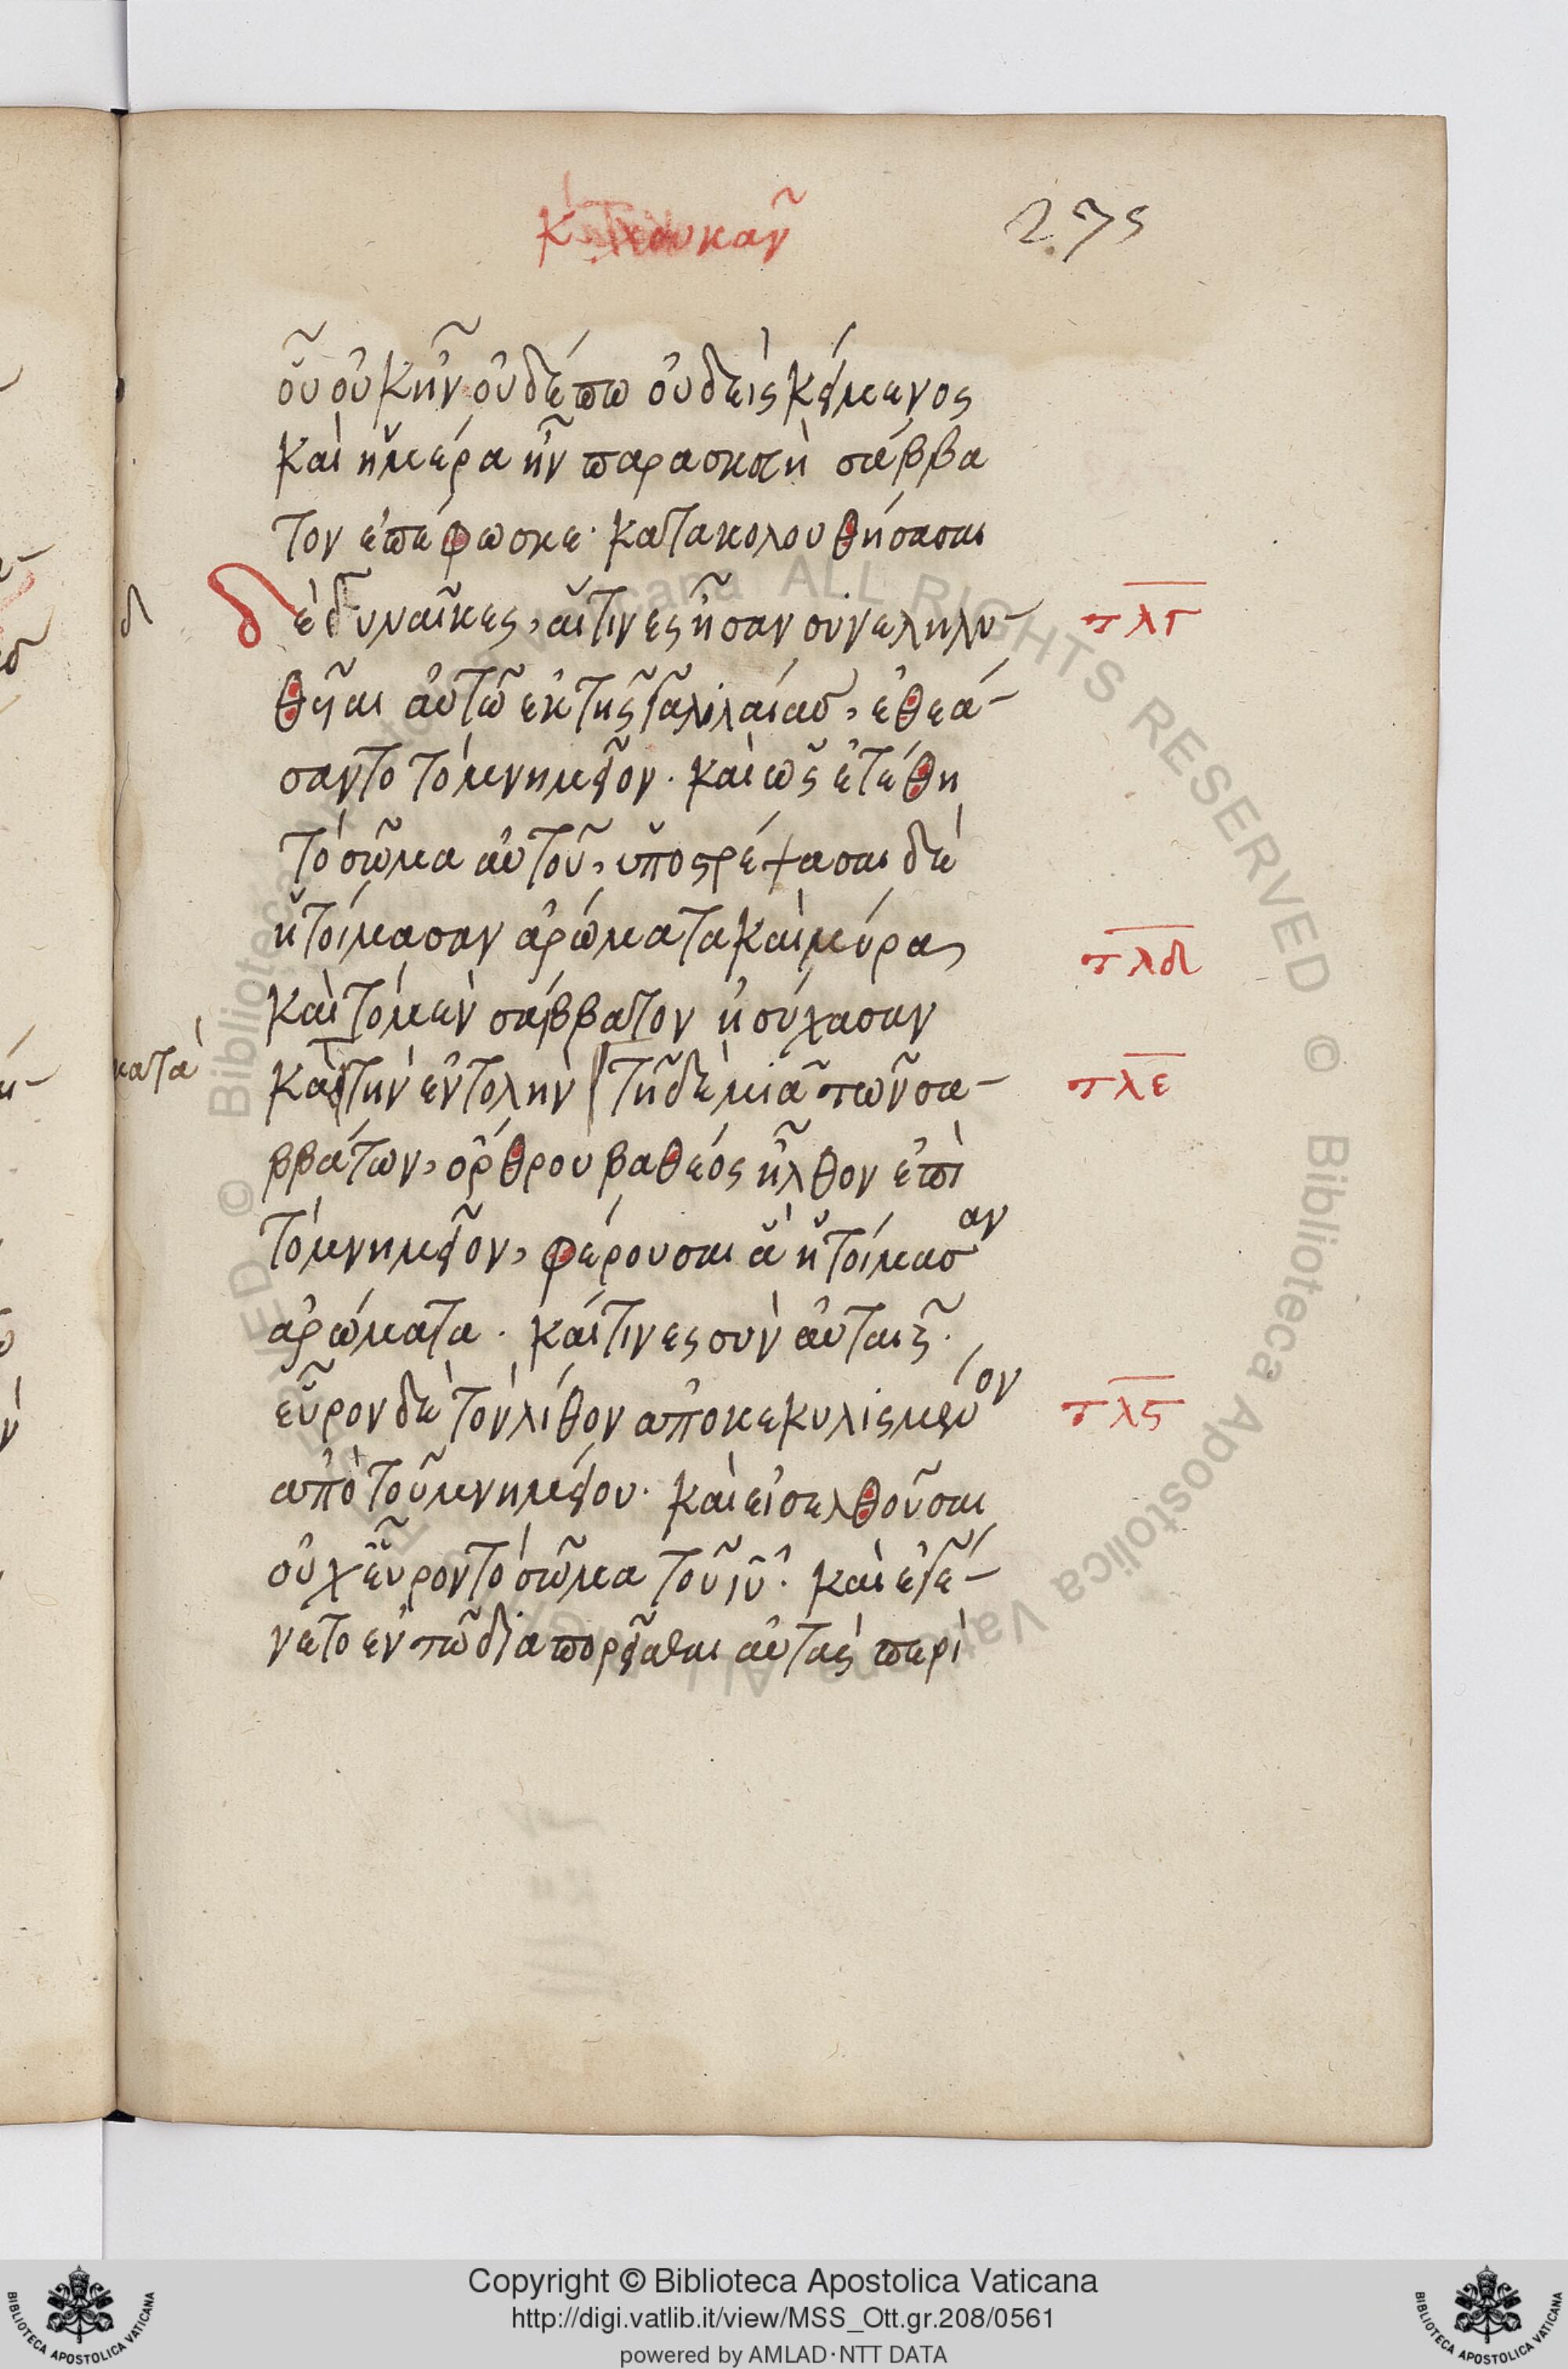 275
οὗ οὐκ ἦν οὐδέπω οὐδεὶς κείμενος
καὶ ἡμέρα ἦν παρασκευὴ σάββα
τον ἐπέφωσκε· κατακολουθήσασαι
δὲ γυναῖκες, αἵτινες ἦσαν συνεληλυ-
θεῖαι αὐτῶ ἐκ τῆς γαλιλαίας, ἐθεά-
σαντο τὸ μνημεῖον· καὶ ὡς ἐτέθη
τὸ σῶμα αὐτοῦ, ὑποστρέψασαι δὲ
ἡτοίμασαν ἀρώματα καὶ μύρα,
καὶ τὸ μὲν σάββατον ἡσύχασαν
κατὰ τὴν ἐντολὴν τῆ δὲ μιᾶ τῶν σα-
ββάτων, ὄρθρου βαθέος ἦλθον ἐπὶ
τὸ μνημεῖον, φέρουσαι ἃ ἡτοίμασαν
ἀρώματα· καί τινες σὺν αὐταῖς·
εὗρον δὲ τὸν λίθον ἀποκεκυλισμένον
ἀπὸ τοῦ μνημείου· καὶ εἰσελθοῦσαι
οὐχ εὗρον τὸ σῶμα τοῦ ιυ· καὶ ἐγέ-
νετο ἐν τῶ διαπορεῖσθαι αὐτὰς περὶ
δ
κατὰ
τλγ
τλδ
τλε
τλϛ
Copyright © Biblioteca Apostolica Vaticana
http://digi.vatlib.it/view/MSS_Ott.gr.208/0561
powered by AMLAD·NTT DATA
BIBLIOTECA APOSTOLICA VATICANA
BIBLIOTECA APOSTOLICA VATICANA